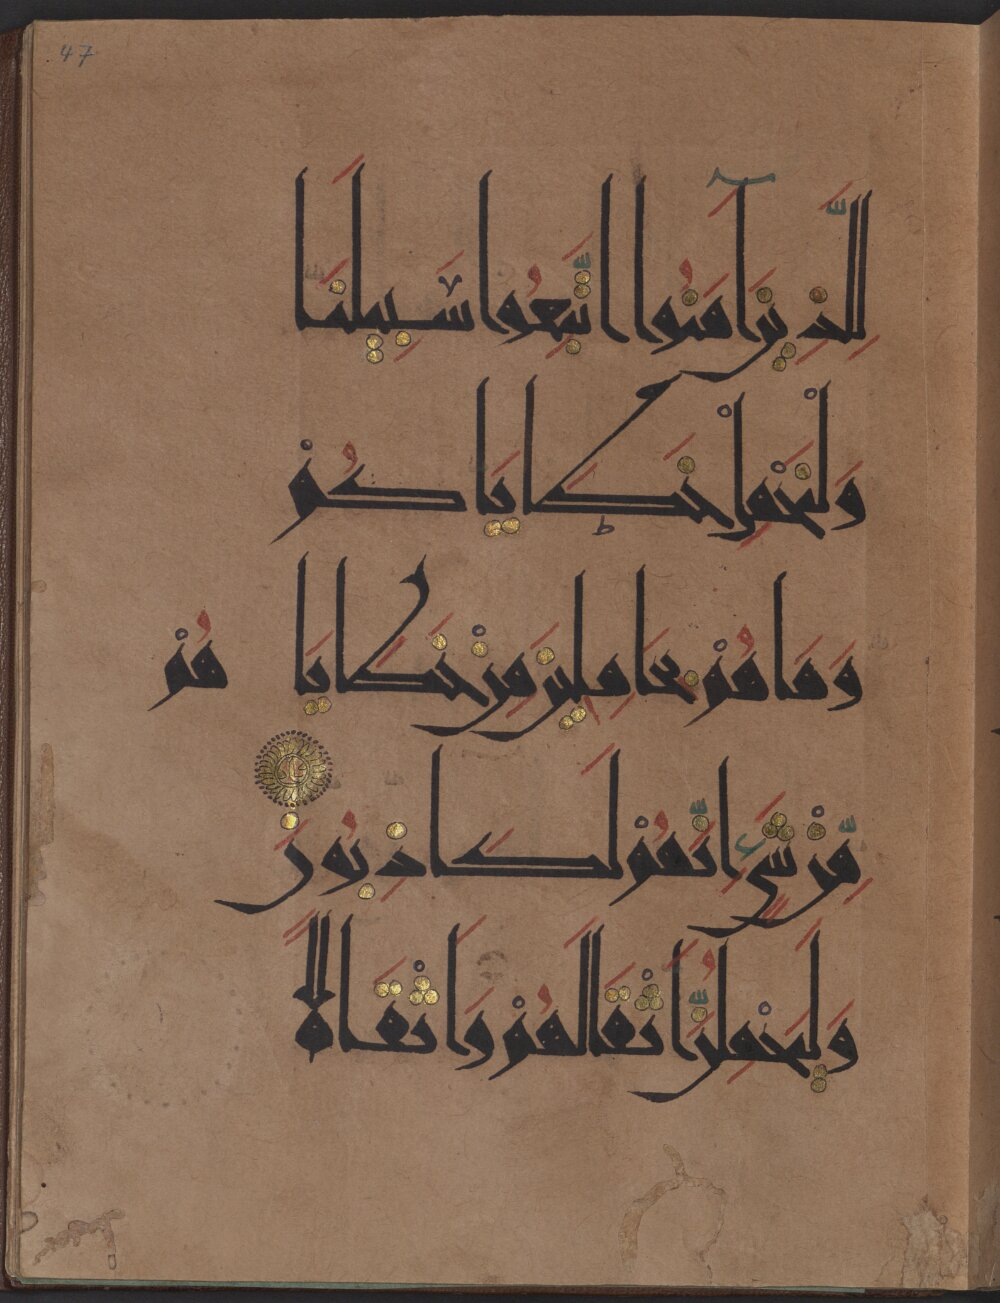 47
لِلَّذِينَ آمَنُوا اتَّبِعُوا سَبِيلَنَا
وَلْنَحْمِلْ خَطَايَاكُمْ
وَمَا هُمْ بِحَامِلِينَ مِنْ خَطَايَاهُمْ
مِّنْ شَيْءٍ إِنَّهُمْ لَكَاذِبُونَ
وَلَيَحْمِلُنَّ أَثْقَالَهُمْ وَأَثْقَالًا